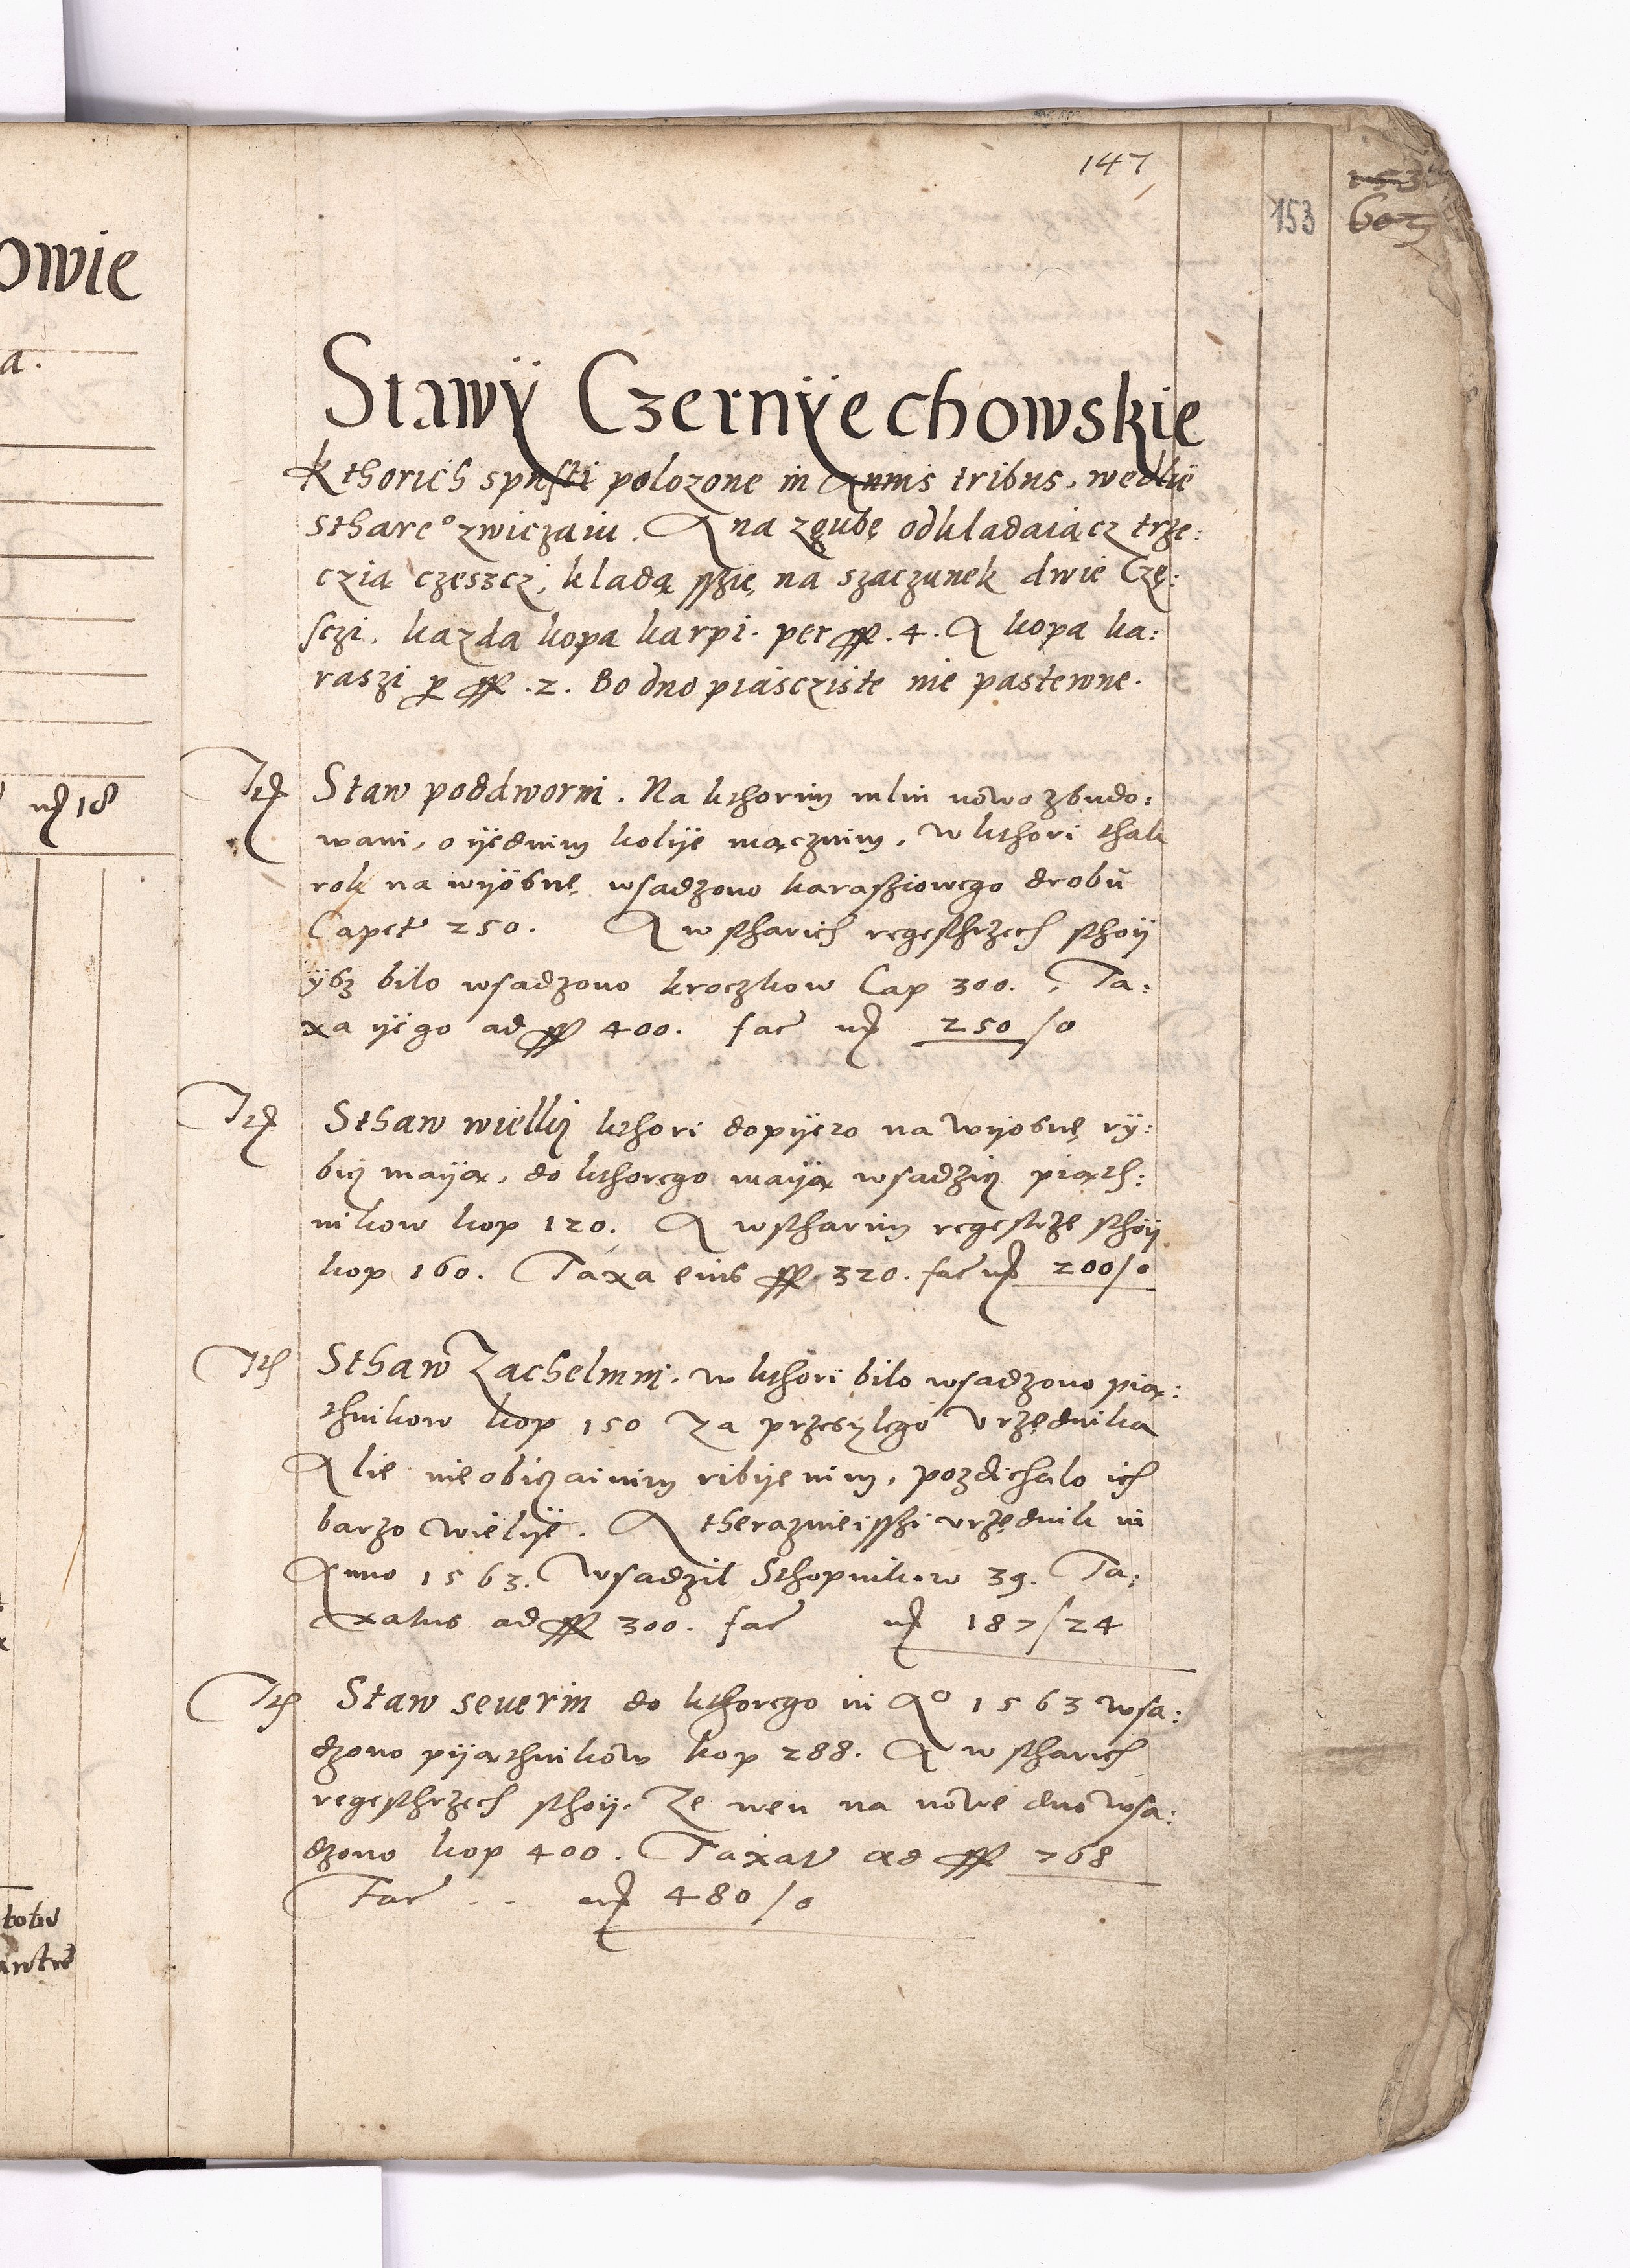 147
153
owie
a.
18
Stawÿ Czernÿechowskie
Kthorich spusti polozone in Annis tribus, wedlie
sthareº zwiczaiu. A na zgubę odkladaiącz trze:
czią czeszcz, kladą sszię na szaczunek dwie Czę:
sczi, kazda kopa karpi. per ff. 4. A kopa ka:
raszi p ff. 2. Bo dno piascziste nie pastewne.
Itē Staw poddworni. Na kthorim mlin nowo zbudo:
wani, o iednim kolÿe mącznim, w kthori thak
rok na wÿosnę wsadzono karasziowego drobu
Capet 250. A w stharich regesthrzech sthoÿ
ÿsz bilo wsadzono kroczkow Cap 300. Ta:
xa ÿego ad ff 400. fac mᵣ 250/0
Itē Sthaw wielki kthori dopÿero na wÿosnę rÿ:
bicz maÿą, do kthorego maÿą wsadzicz piąth:
nikow kop 120. A w stharim regestrze sthoÿ
kop 160. Taxa eius ff. 320. fac mᵣ 200/0
Itē Sthaw Zachelmni, w kthori bilo wsadzono pią:
thnikow kop 150 Za przeszlego Vrzędnika
Alie nieobiczainim ribÿenim, pozdichalo ich
barzo wielÿe. A theraznieisszi vrzędnik in
Anno 1563. Wsadzil Sthopnikow 39. Ta:
xatus ad ff 300. fac mᵣ 187/24
Itē Staw seuerin do kthorego in Aº 1563 wsa:
dzono pÿąthnikow kop 288. A w stharich
regesthrzech sthoÿ. Ze wen na nowe dno wsa:
dzono kop 400. Taxat ad ff 768
Fac .. mᵣ 480/0